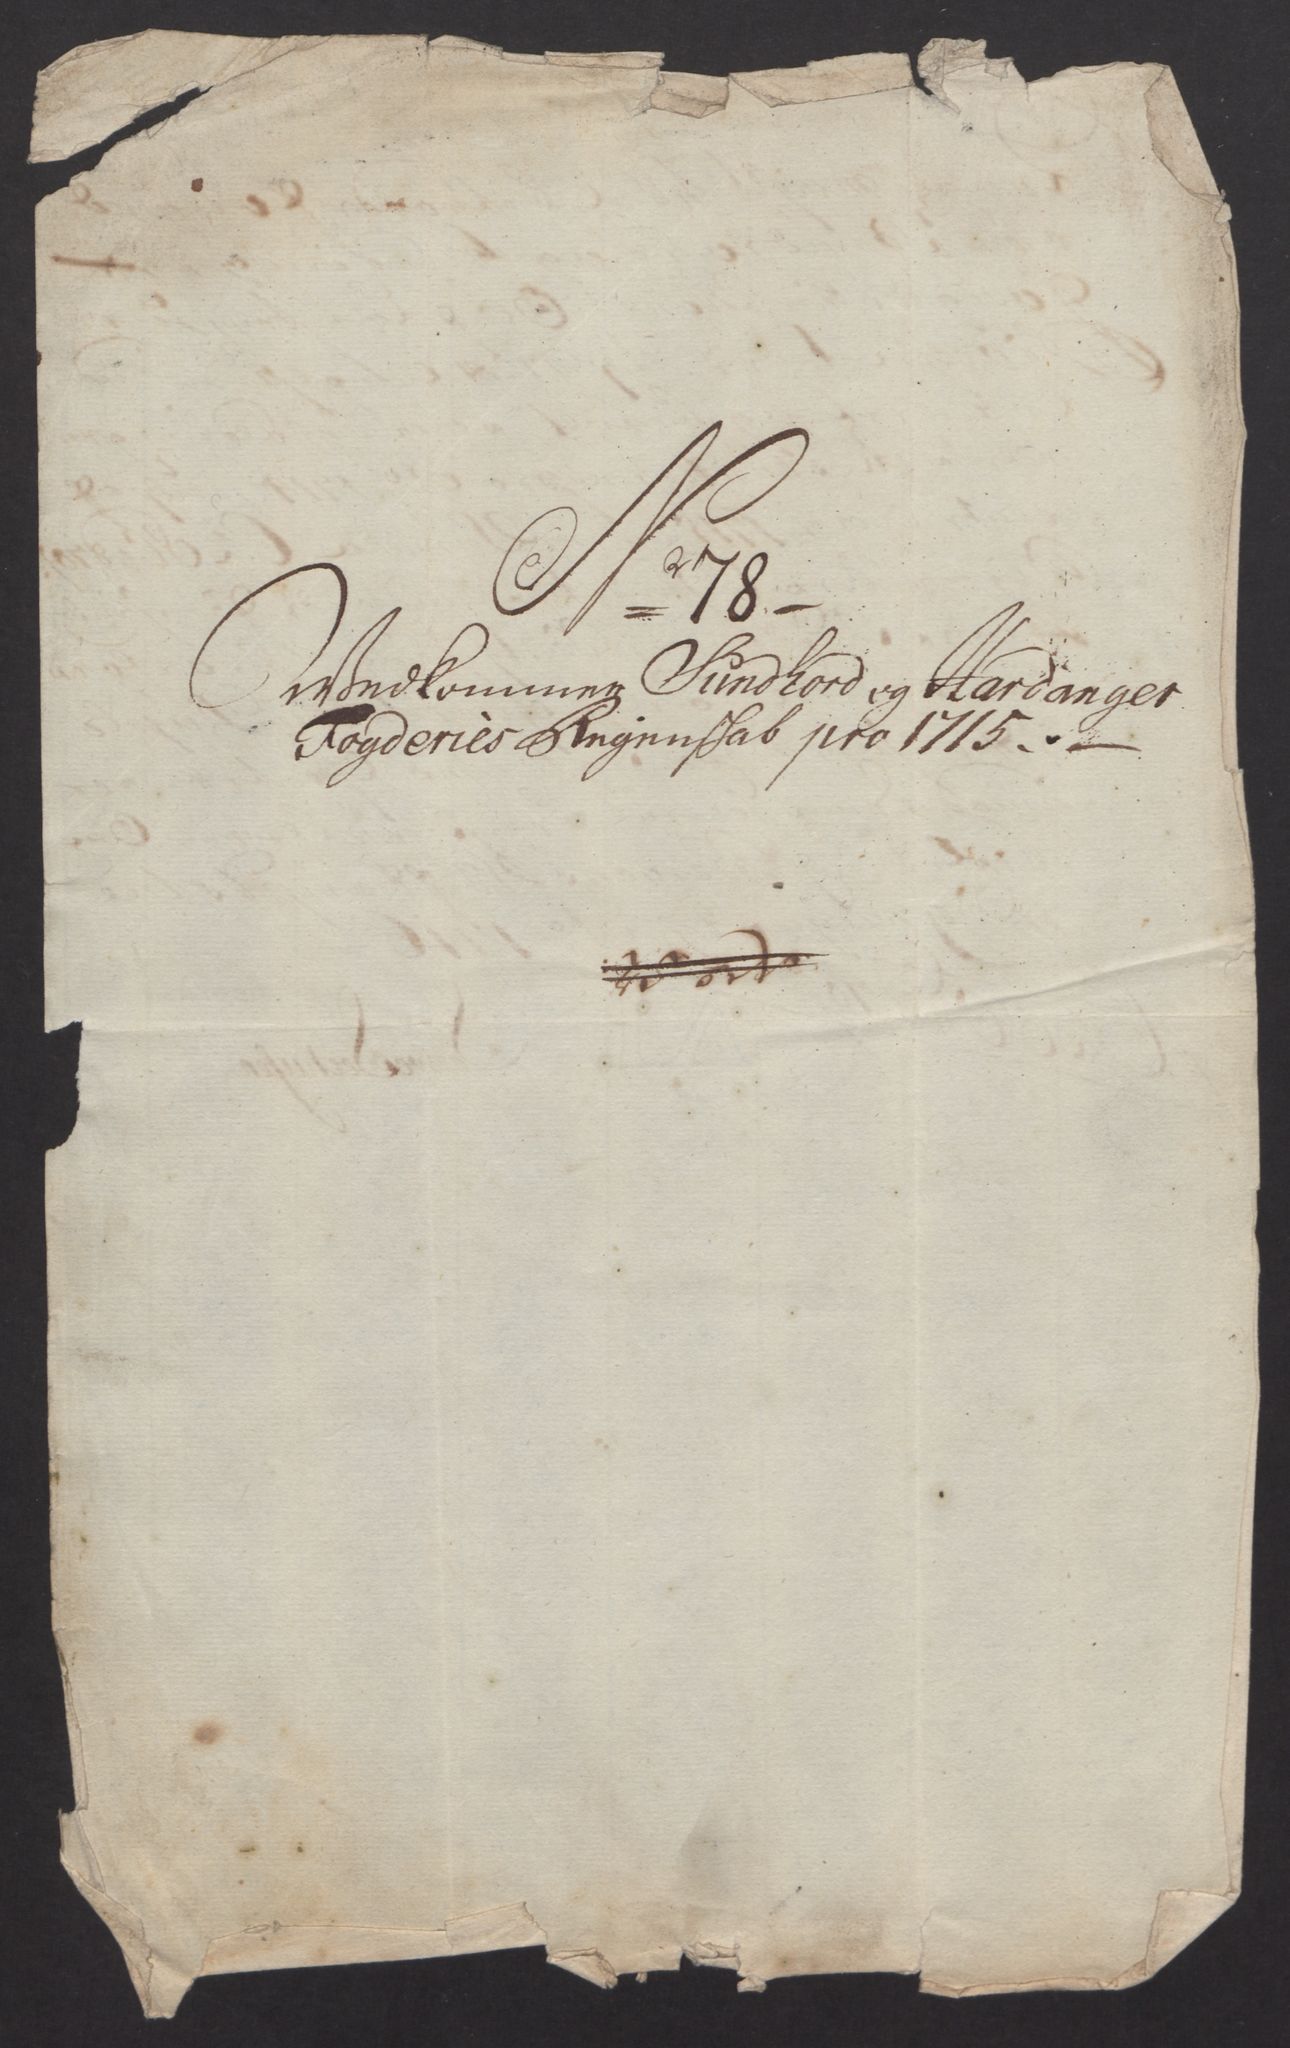 No 78
Wedkommer Sundhord og Hardanger
Fogderies Regenskab pro 1715